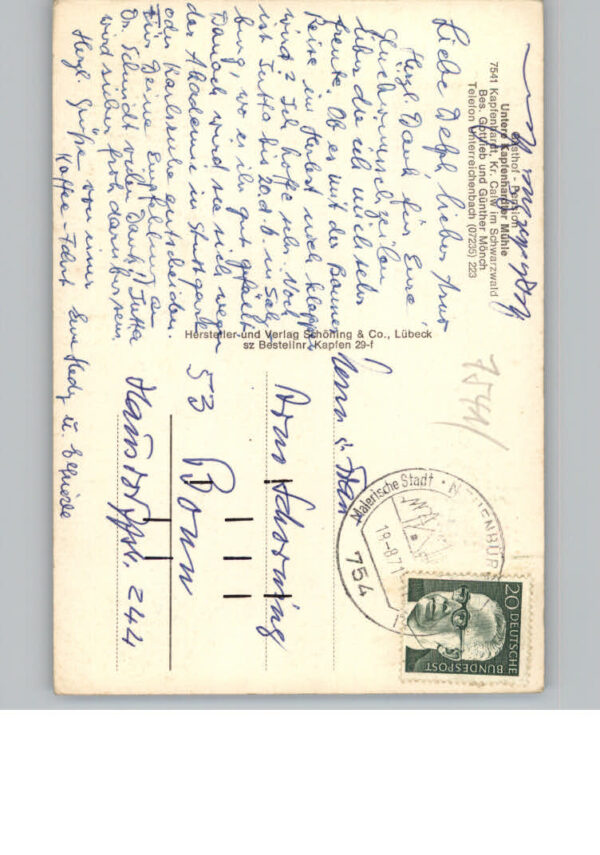 Gasthof - Pension
Untere Kapfenhardter Mühle
7541 Kapfenhardt, Kr. Calw im Schwarzwald
Bes. Gottlieb und Günther Mönch
Telefon Unterreichenbach (07235) 223
Liebe Delph, lieber Arno
Herzl. Dank für Eure
Glückwunschzeilen
über die ich mich sehr
freute. Ob es mit der Bonner
Reise im Herbst noch klappen
wird? Ich hoffe sehr. Noch
ist Jutta bis 20. d. M. in Salz
burg, wo es ihr gut gefällt
Danach wird sie sich wegen
der Akademie in Stuttgart
oder Karlsruhe entscheiden.
Für Deine Empfehlung a
Dr. Schmidt vielen Dank! Jutta
wird sicher froh darüber sein.
Herzl. Grüße von einer
Kaffee-Fahrt Eure Hedy u. Elfriede
Hersteller und Verlag Schöning & Co., Lübeck
sz Bestellnr. Kapfen 29-f
7541
Herrn u. Frau
Arno Schorning
53 Bonn
Hausdorffstr. 244
Malerische Stadt · NEUENBÜRG
19-8.71
754
20 DEUTSCHE
BUNDESPOST